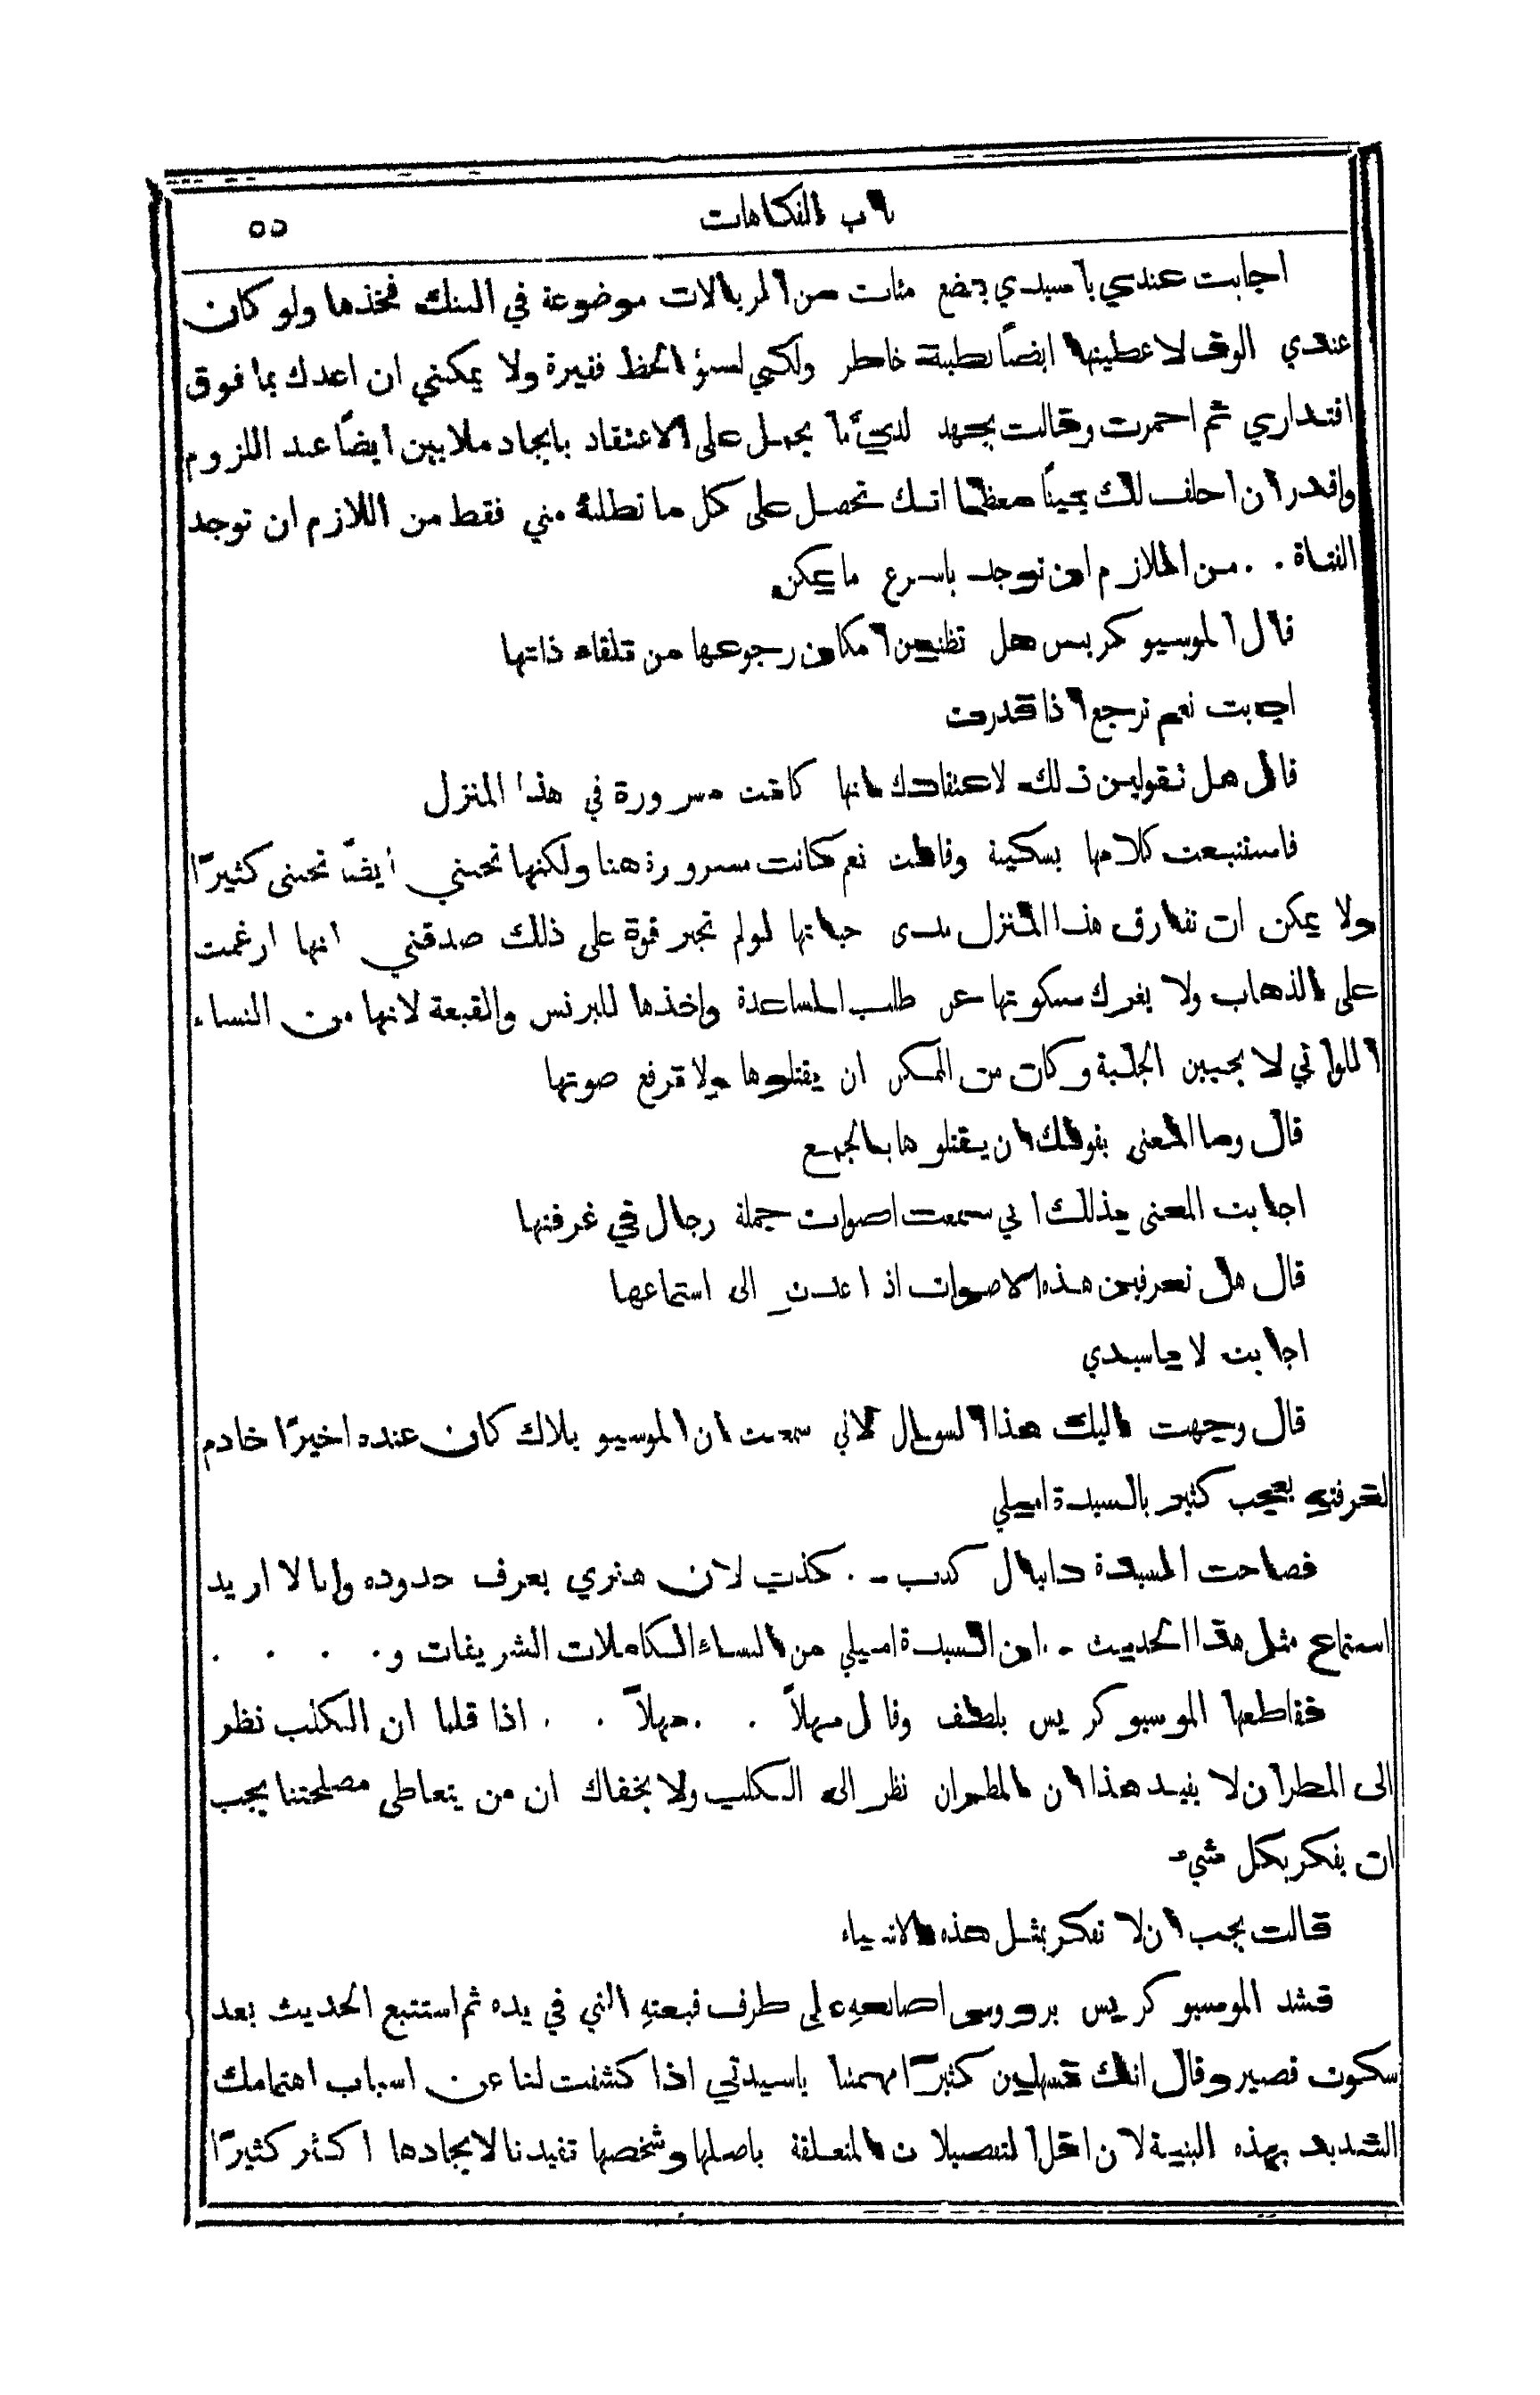 باب الفكاهات ٥٥
اجابت عندي يا سيدي بضع مئات من الريالات موضوعة في البنك فخذها ولو كان
عندي الوف لاعطيتها ايضًا بطيبة خاطر ولكني لسؤ الحظ فقيرة ولا يمكنني ان اعدك بما فوق
اقتداري ثم احمرت وقالت بجهد لديَّ ما يحمل على الاعتقاد بايجاد ملايين ايضًا عند اللزوم
واقدر ان احلف لك يمينًا معظمًا انك تحصل على كل ما تطلبهُ مني فقط من اللازم ان توجد
الفتاة . . من اللازم ان توجد باسرع ما يمكن
قال الموسيو كريس هل تظنين امكان رجوعها من تلقاء ذاتها
اجابت نعم ترجع اذا قدرت
قال هل تقولين ذلك لاعتقادك انها كانت مسرورة في هذا المنزل
فاستتبعت كلامها بسكينة وقالت نعم كانت مسرورة هنا ولكنها تحبني ايضًا تحبني كثيرًا
ولا يمكن ان تفارق هذا المنزل مدى حياتها لو لم تجبر قوة على ذلك صدقني انها ارغمت
على الذهاب ولا يغرك سكوتها عن طلب المساعدة واخذها للبرنس والقبعة لانها من النساء
اللواتي لا يحببن الجلبة وكان من الممكن ان يقتلوها ولا ترفع صوتها
قال وما المعنى بقولك ان يقتلوها بالجمع
اجابت المعنى بذلك اني سمعت اصوات جملة رجال في غرفتها
قال هل تعرفين هذه الاصوات اذا عدت الى استماعها
اجابت لا يا سيدي
قال وجهت اليك هذا السوال لاني سمعت ان الموسيو بلاك كان عنده اخيرًا خادم
لغرفته يعجب كثيرًا بالسيدة اميلي
فصاحت السيدة دانيال كذب . كذب لان هنري يعرف حدوده وانا لا اريد
استماع مثل هذا الحديث . ان السيدة اميلي من النساء الكاملات الشريفات و . . . .
فقاطعها الموسيو كريس بلطف وقال مهلاً . . مهلاً . . اذا قلنا ان الكلب نظر
الى المطران لا يفيد هذا ان المطران نظر الى الكلب ولا يخفاك ان من يتعاطى مصلحتنا يجب
ان يفكر بكل شيء
قالت يجب ان لا تفكر بمثل هذه الاشياء
فشد الموسيو كريس برووس اصابعهِ على طرف قبعتهِ التي في يده ثم استتبع الحديث بعد
سكوت قصير وقال انك تسهلين كثيرًا مهمتنا يا سيدتي اذا كشفت لنا عن اسباب اهتمامك
الشديد بهذه البنية لان اقل التفصيلات المتعلقة باصلها وشخصها تفيدنا لايجادها اكثر كثيرًا